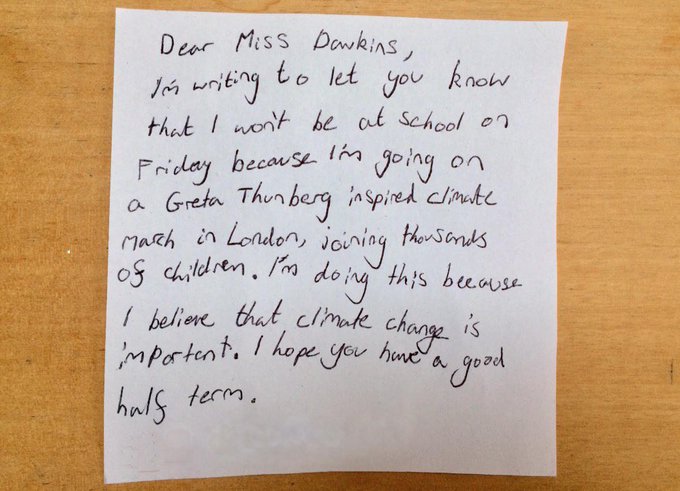 Dear Miss Dawkins,
I'm writing to let you know
that I won't be at school on
Friday because I'm going on
a Greta Thunberg inspired climate
march in London, joining thousands
of children. I'm doing this beecause
I believe that climate change is
important. I hope you have a good
half term.